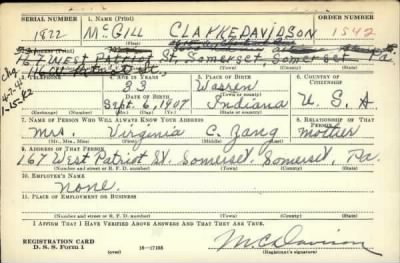 SERIAL NUMBER 1. NAME (Print) ORDER NUMBER
1822 McGILL CLARKE DAVIDSON 1542
167 West Patriot St, Somerset, Somerset Pa.
TELEPHONE 3. AGE IN YEARS 5. PLACE OF BIRTH 6. COUNTRY OF CITIZENSHIP
33 Warren
DATE OF BIRTH (Town or county)
Sept. 6, 1907 Indiana U.S.A
(Mo.) (Day) (Yr.) (State or country)
7. NAME OF PERSON WHO WILL ALWAYS KNOW YOUR ADDRESS 8. RELATIONSHIP OF THAT PERSON
Mrs. Virginia C. Zang mother
(Mr., Mrs., Miss) (First) (Middle) (Last)
9. ADDRESS OF THAT PERSON
167 West Patriot St. Somerset, Somerset, Pa.
(Number and street or R. F. D. number) (Town) (County) (State)
10. EMPLOYER'S NAME
None.
11. PLACE OF EMPLOYMENT OR BUSINESS
(Number and street or R. F. D. number) (Town) (County) (State)
I AFFIRM THAT I HAVE VERIFIED ABOVE ANSWERS AND THAT THEY ARE TRUE.
REGISTRATION CARD
D. S. S. Form 1 (over)